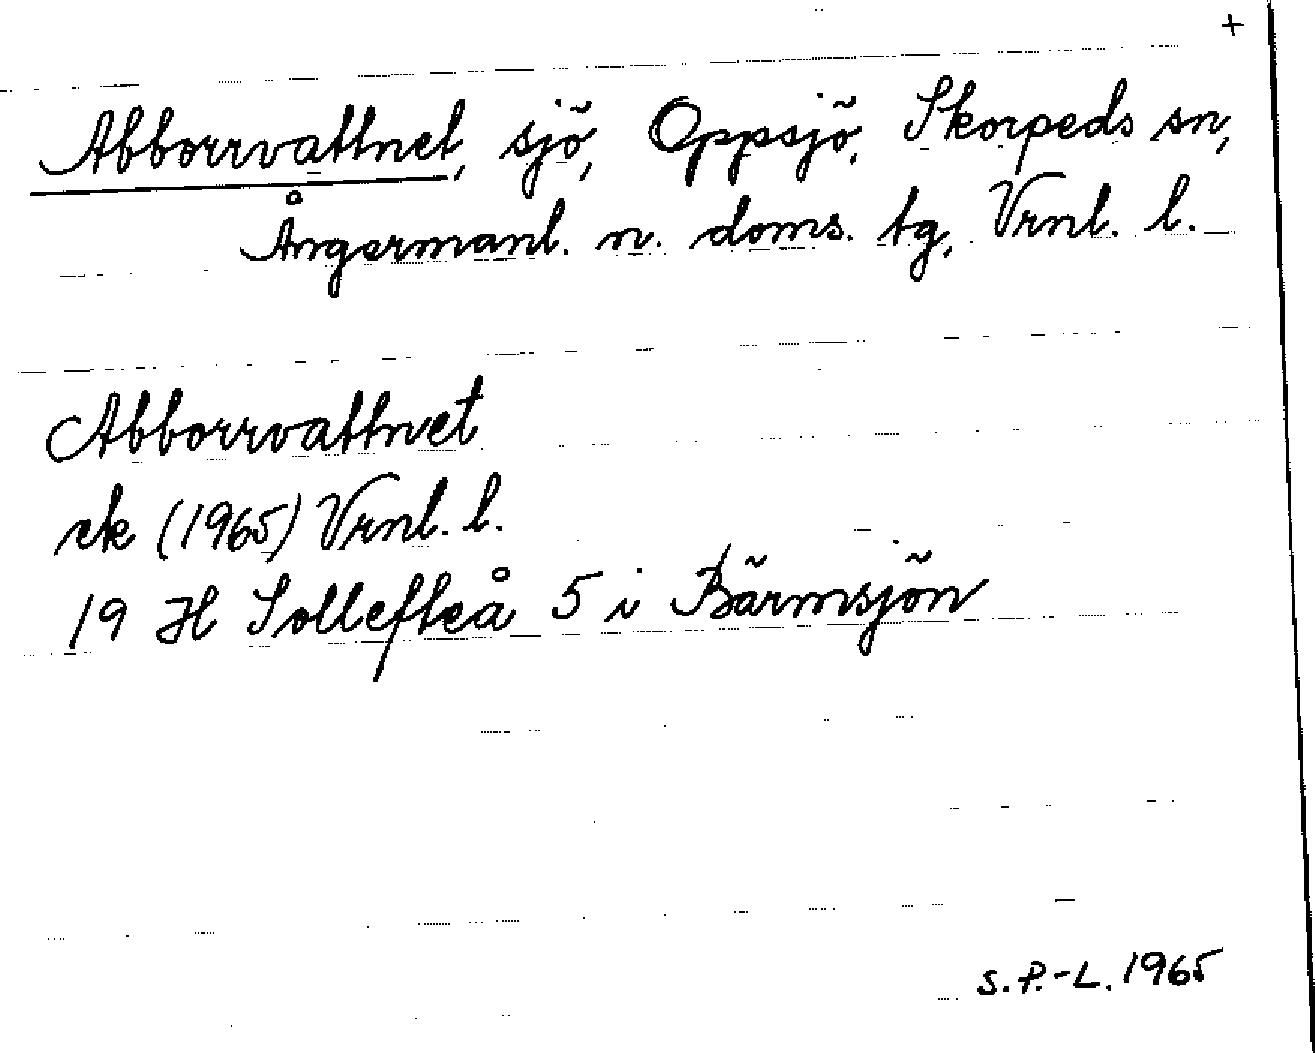 +
Abborrvattnet, sjö, Oppsjö, Skorpeds sn,
Ångermanl. n. doms. tg, Vrnl. l.
Abborrvattnet
ek (1965) Vrnl. l.
19 H Sollefteå 5 i Bärmsjön
S.P.-L. 1965